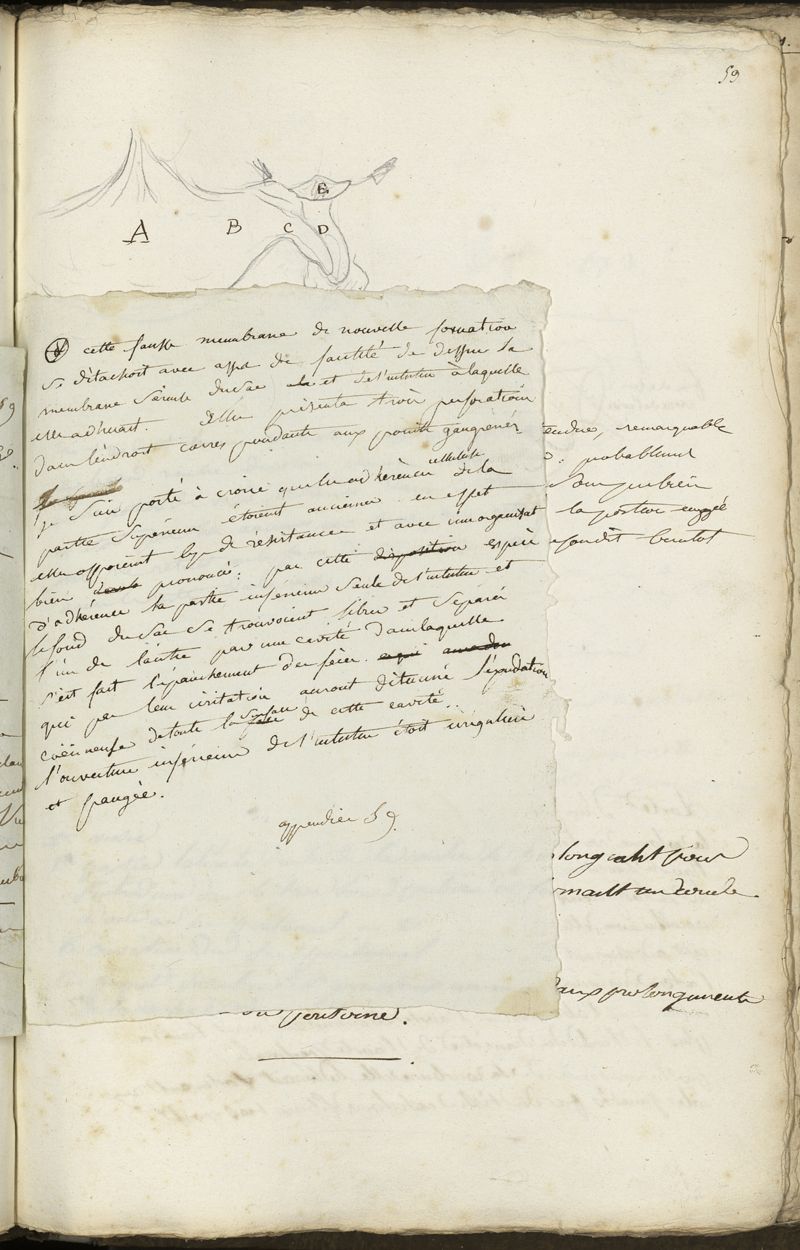 59
E
A B C D
cette fausse membrane de nouvelle formation
se détachoit avec assez de facilité de dessus la
membrane séreuse du sac et de l'intestin à laquelle
elle adhéroit. Elle présenta trois perforations
dans l'endroit correspondante aux points gangrénés
je suis porté à croire que les adhérences celluleuse de la
partie supérieure étoient anciennes. en effet
elles opposerent bcp de résistance et avec une organisat
bien prononcé. par cette disposition espèce
d'adhérence la partie inférieure seule de l'intestin et
le fond du sac se trouvoient libres et séparés
l'un de l'autre par une cavité dans laquelle
s'est fait l'épanchement des fèces.
qui par leur irritation auront déterminé l'exudation
coëneuse de toute la surface de cette cavité..
l'ouverture inférieure de l'intestin étoit irrégulière
et frangée.
appendice 59.
tendue, remarquable
probablement
la portion engagée
bientot
longeoient pour
aux prolongements
du péritoine.